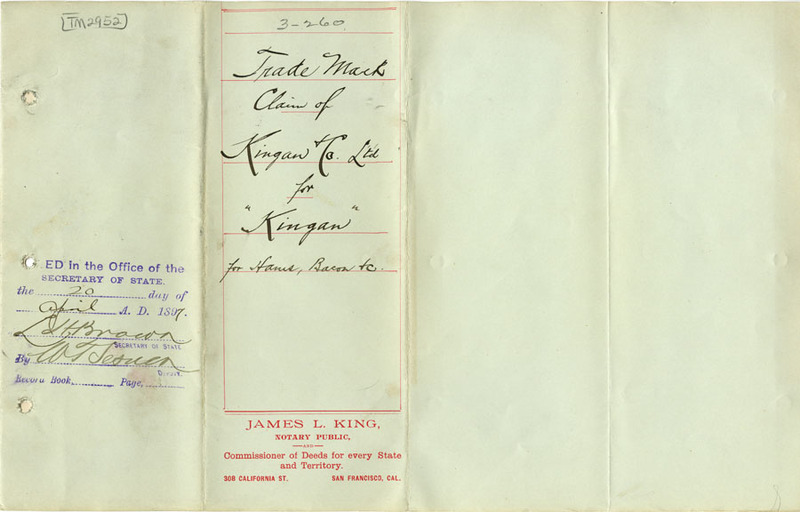 [TM2952]
ED in the Office of the
SECRETARY OF STATE.
the 20 day of
April A. D. 1897.
L. H. Brown
SECRETARY OF STATE
By
Deputy.
Record Book, Page,
3-260.
Trade Mark
Claim of
Kingan & Co. Ltd
for
"Kingan"
for Hams, Bacon &c.
JAMES L. KING,
NOTARY PUBLIC,
—AND—
Commissioner of Deeds for every State
and Territory.
308 CALIFORNIA ST. SAN FRANCISCO, CAL.